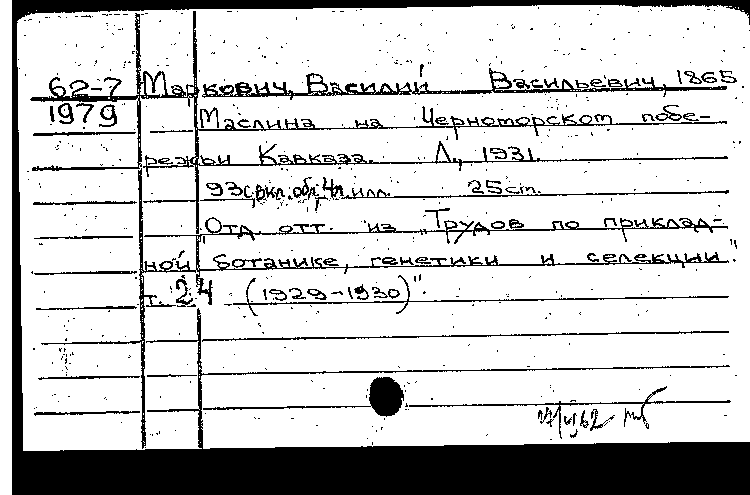 62-7 Маркович, Василий Васильевич, 1865
1979 Маслина на Черноморском побе-
режьи Кавказа. Л., 1931.
93с, вкл. обл; 4л. илл. 25см.
"Отд. отт. из „Трудов по приклад-
ной ботанике, генетики и селекции."
т. 24 (1929-1930)".